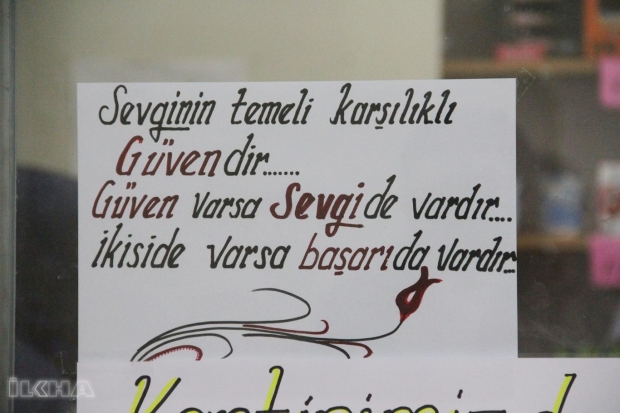 Sevginin temeli karşılıklı
Güvendir.......
Güven varsa Sevgide vardır....
ikiside varsa başarıda vardır...
Kantinimizd
İLKHA